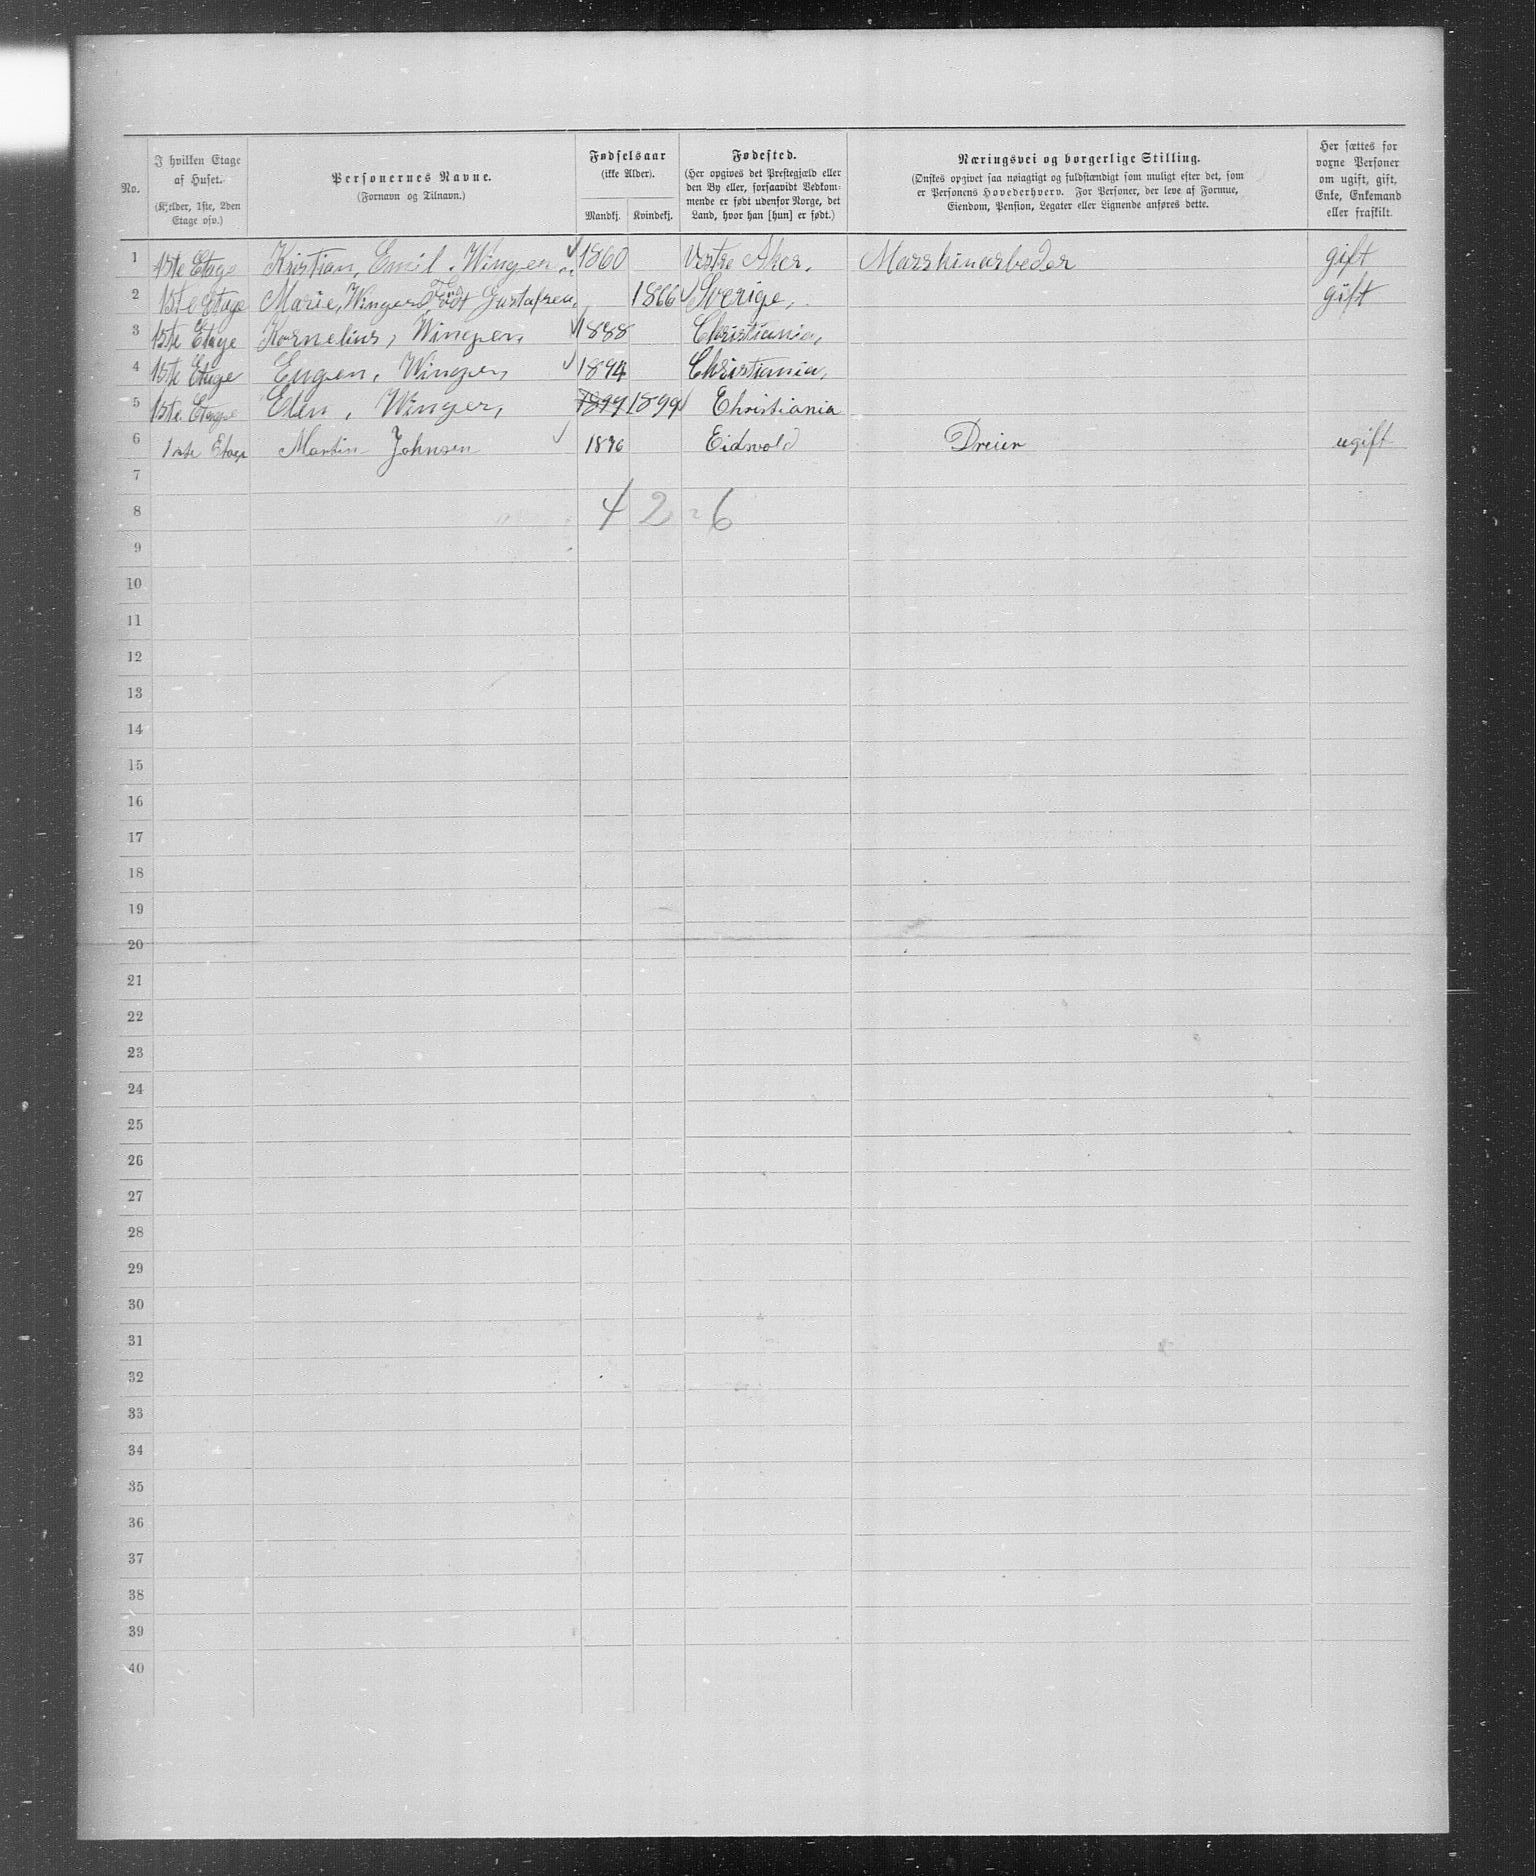 No.
I hvilken Etage af Huset. (Kjælder, 1ste, 2den Etage osv.)
Personernes Navne. (Fornavn og Tilnavn.)
Fødselsaar (ikke Alder). Mandkj. Kvindekj.
Fødested. (Her opgives det Prestegjæld eller den By eller, forsaavidt Vedkommende er født udenfor Norge, det Land, hvor han [hun] er født.)
Næringsvei og borgerlige Stilling. (Ønskes opgivet saa nøiagtigt og fuldstændigt som muligt efter det, som er Personens Hovederhverv. For Personer, der leve af Formue, Eiendom, Pension, Legater eller Lignende anføres dette.
Her sættes for voxne Personer om ugift, gift, Enke, Enkemand eller fraskilt.
1 1ste Etage Kristian, Emil. Winger. 1860 Vestre Aker, Marskinarbeder gift
2 1ste Etage Marie, Winger, Født Gustafsen, 1866 Sverige, gift
3 1ste Etage Kornelius, Winger, 1888 Christiania,
4 1ste Etage Eugen, Winger, 1894 Christiania,
5 1ste Etage Elen, Winger, 1899 1899 Christiania
6 1ste Etage Martin Johnsen 1876 Eidsvold Dreier ugift
7
8 4 2 = 6
9
10
11
12
13
14
15
16
17
18
19
20
21
22
23
24
25
26
27
28
29
30
31
32
33
34
35
36
37
38
39
40